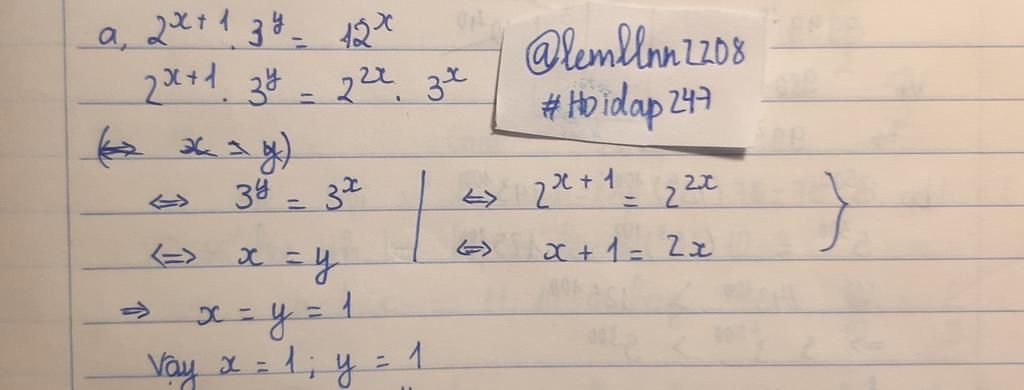 a, 2^{x+1} . 3^y = 12^x
2^{x+1} . 3^y = 2^{2x} . 3^x
@lemllnn2208
#Hoidap247
(⇔ x = y)
⇔ 3^y = 3^x | ⇔ 2^{x+1} = 2^{2x} }
⇔ x = y | ⇔ x + 1 = 2x
⇒ x = y = 1
Vậy x = 1 ; y = 1